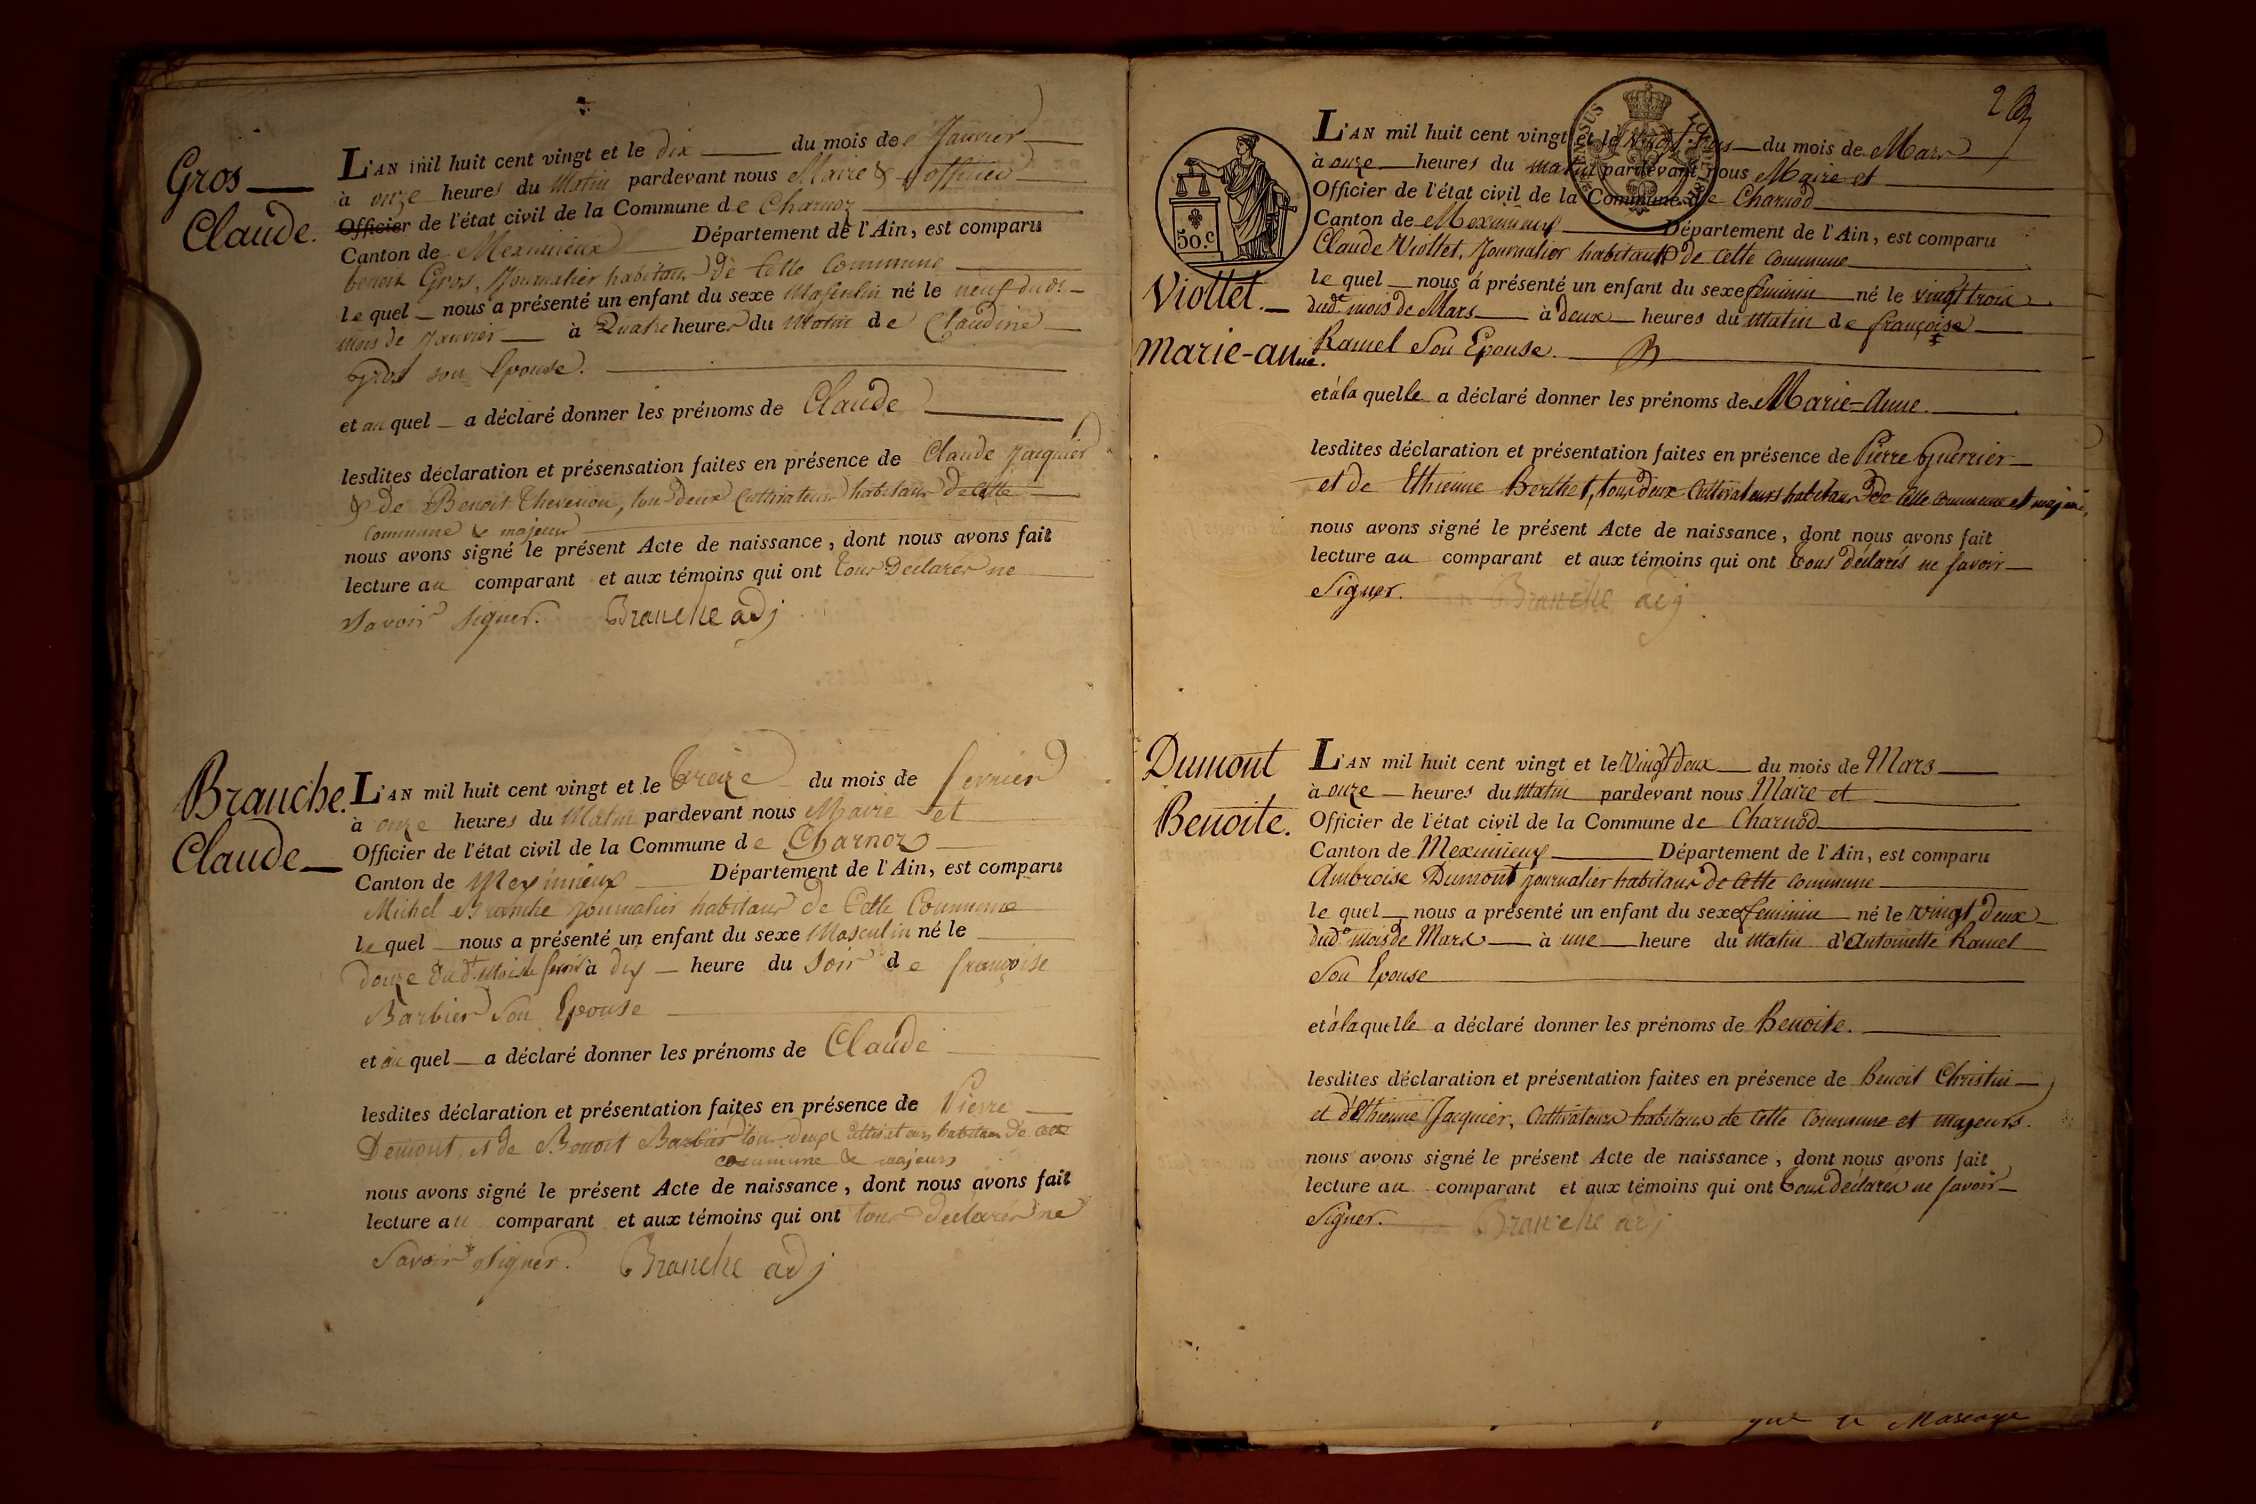 Gros
Claude.
L'AN mil huit cent vingt et le dix du mois de Janvier
à onze heures du Matin pardevant nous Maire & officier
Officier de l'état civil de la Commune de Charnoz
Canton de Meximieux Département de l'Ain, est comparu
benoit Gros, Journalier habitant de Cette Commune
le quel nous a présenté un enfant du sexe Masculin né le neuf dudt
mois de Janvier à Quatre heures du Matin de Claudine
Gros son Epouse.
et au quel a déclaré donner les prénoms de Claude
lesdites déclaration et présensation faites en présence de Claude Jacquier
& de Benoit Thevenon, tous deux Cultivateurs habitans de Cette
Commune & majeurs
nous avons signé le présent Acte de naissance, dont nous avons fait
lecture au comparant et aux témoins qui ont tous Déclarés ne
Savoir signer. Branche adj
Branche.
Claude
L'AN mil huit cent vingt et le treize du mois de fevrier
à onze heures du Matin pardevant nous Maire et
Officier de l'état civil de la Commune de Charnoz
Canton de Meximieux Département de l'Ain, est comparu
Michel Branche Journalier habitant de Cette Commune
le quel nous a présenté un enfant du sexe Masculin né le
douze dudt mois de fevrier à dix heure du Soir de françoise
Barbier Son Epouse
et au quel a déclaré donner les prénoms de Claude
lesdites déclaration et présentation faites en présence de Pierre
Demont, et de Benoit Barbier tous deux Cultivateurs habitans de cette
commune & majeurs
nous avons signé le présent Acte de naissance, dont nous avons fait
lecture au comparant et aux témoins qui ont tous déclarés ne
Savoir Signer. Branche adj
50.c
Viottet.
Marie-anne.
L'AN mil huit cent vingt et le vingt trois du mois de Mars
à onze heures du matin pardevant nous Maire et
Officier de l'état civil de la Commune de Charnod
Canton de Meximieux Département de l'Ain, est comparu
Claude Viottet, Journalier habitant de cette commune
le quel nous á présenté un enfant du sexe feminin né le vingt trois
dudt mois de Mars à deux heures du matin de françoise
Ramel Son Epouse.
et à la quelle a déclaré donner les prénoms de Marie-Anne.
lesdites déclaration et présentation faites en présence de Pierre Guerrier
et de Ethienne Berthet, tous deux Cultivateurs habitans de Cette commune et majeurs,
nous avons signé le présent Acte de naissance, dont nous avons fait
lecture au comparant et aux témoins qui ont tous déclarés ne savoir
Signer. Branche adj
Dumont
Benoite.
L'AN mil huit cent vingt et le Vingt deux du mois de Mars
à onze heures du Matin pardevant nous Maire et
Officier de l'état civil de la Commune de Charnod
Canton de Meximieux Département de l'Ain, est comparu
Ambroise Dumont Journalier habitans de Cette commune
le quel nous a présenté un enfant du sexe feminin né le vingt deux
dudt mois de Mars à une heure du Matin d'Antoinette Ramel
Son Epouse
et à la quelle a déclaré donner les prénoms de Benoite.
lesdites déclaration et présentation faites en présence de Benoit Christin
et d'Ethienne Jacquier, Cultivateurs habitans de Cette Commune et majeurs.
nous avons signé le présent Acte de naissance, dont nous avons fait
lecture au comparant et aux témoins qui ont tous déclarés ne savoir
Signer. Branche adj